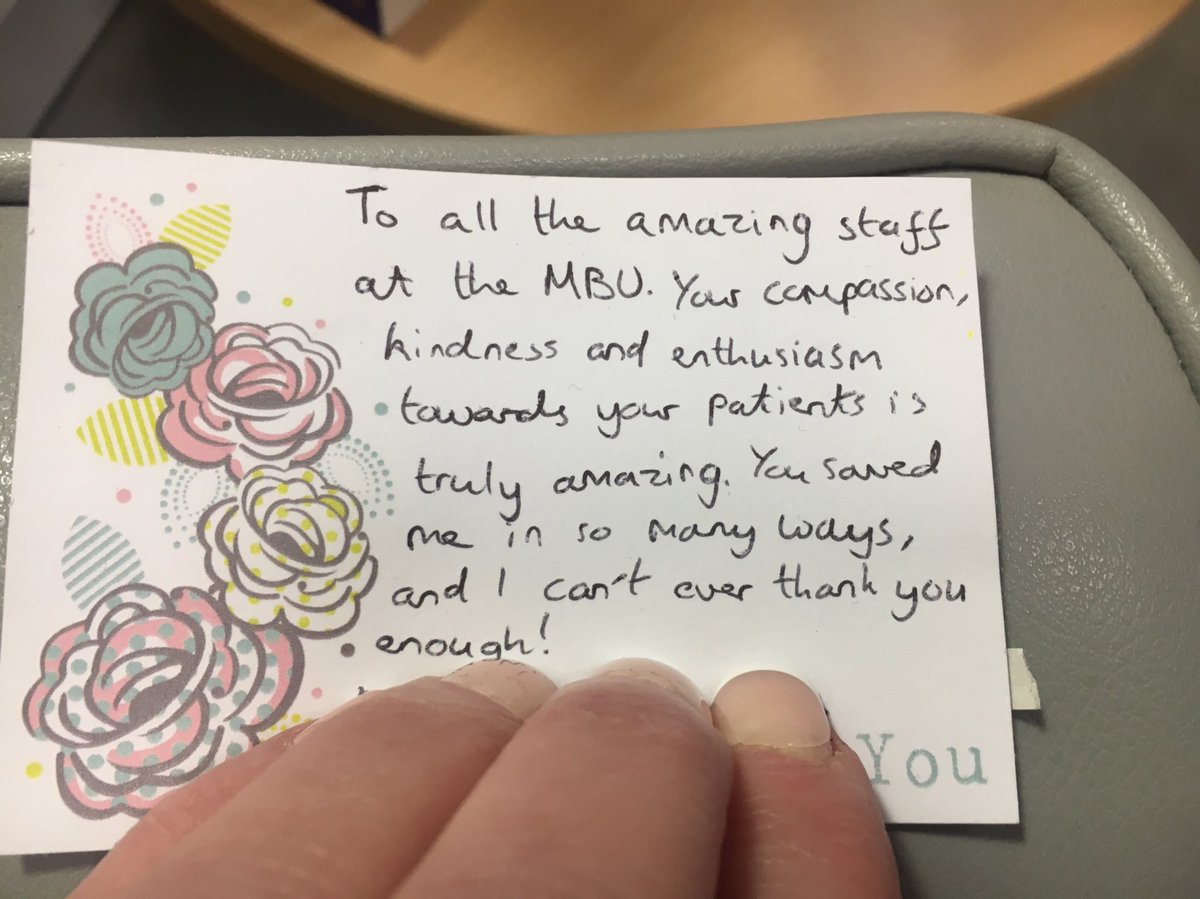 To all the amazing staff
at the MBU. Your compassion,
kindness and enthusiasm
towards your patients is
truly amazing. You saved
me in so many ways,
and I can't ever thank you
enough!
You